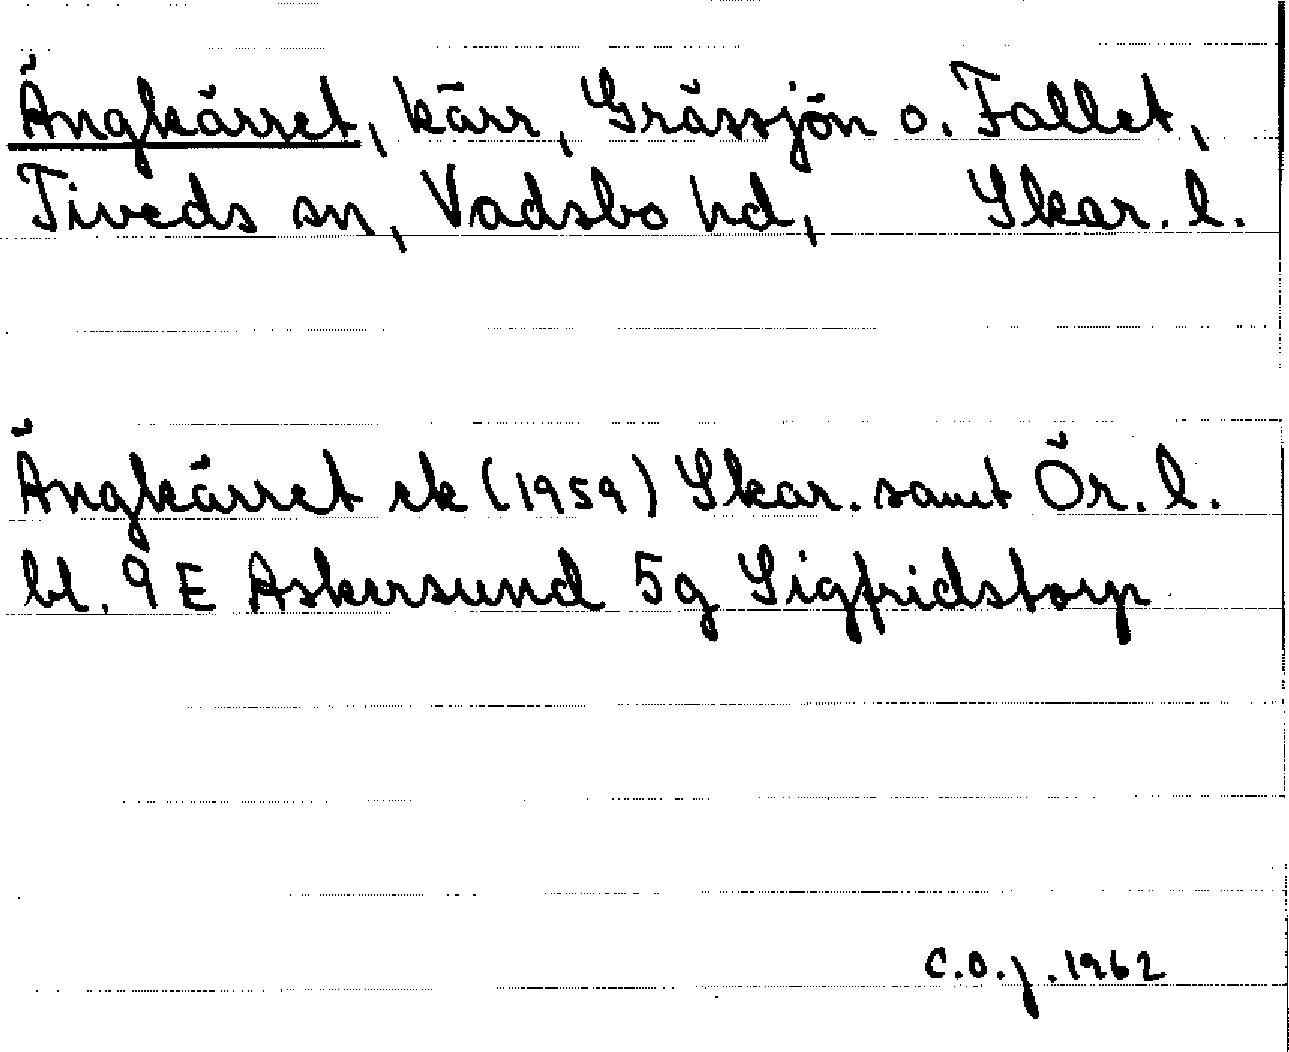 Ängkärret, kärr, Grässjön o. Fallet,
Tiveds sn, Vadsbo hd, Skar. l.
Ängkärret ek (1959) Skar. samt Ör. l.
bl. 9E Askersund 5g Sigfridstorp
C.O.J. 1962